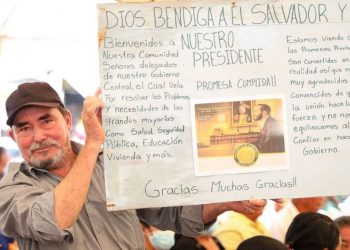 DIOS BENDIGA A EL SALVADOR Y
Bienvenidos a
Nuestra Comunidad
Señores delegados
de nuestro Gobierno
Central, el Cual Vela
Por resolver los Problemas
y necesidades de las
grandes mayorías
Como Salud, Seguridad
Pública, Educación
Vivienda y más.
NUESTRO
PRESIDENTE
PROMESA CUMPLIDA!!
Estamos viendo
las Promesas
Son convertidas en
realidad así que
muy agradecidos
Convencidos de
la unión hace la
fuerza y no nos
equivocamos al
Confiar en
Gobierno.
Gracias Muchas Gracias!!